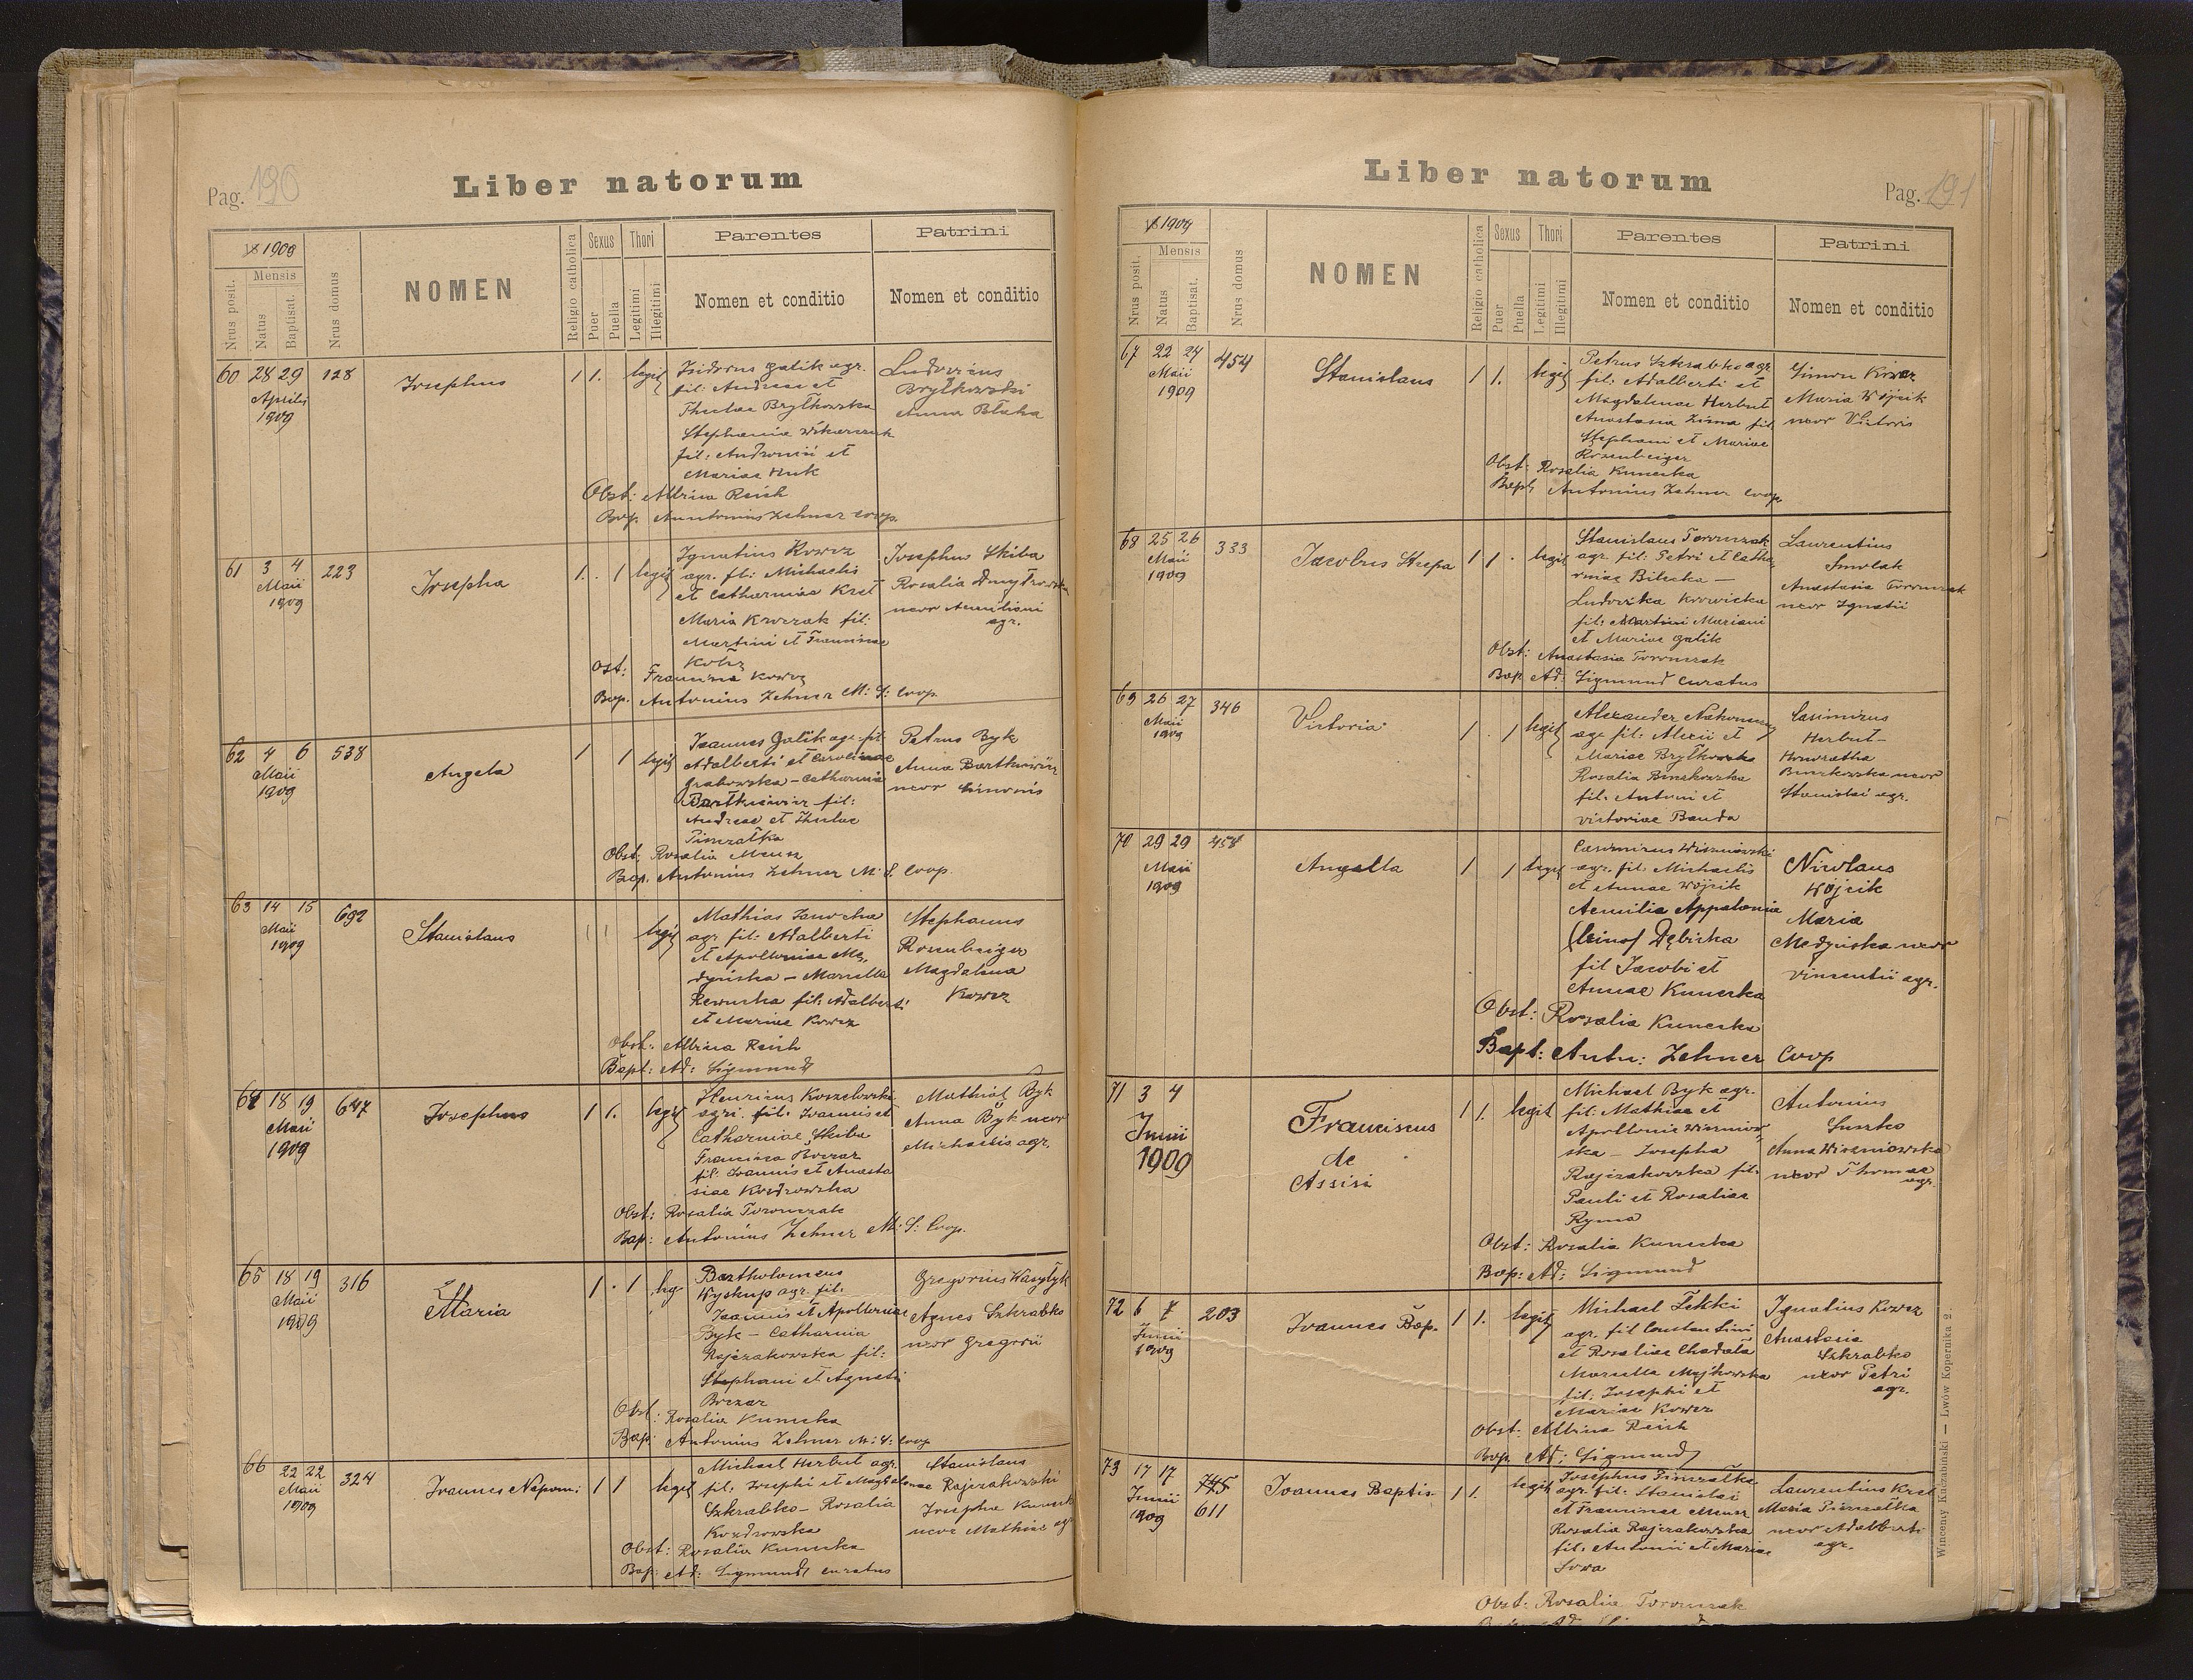 Pag. 190
Liber natorum
18 1909
Nrus posit.
Mensis
Natus
Baptisat.
Nrus domus
NOMEN
Religio catholica
Sexus
Puer
Puella
Thori
Legitimi
Illegitimi
Parentes
Nomen et conditio
Patrini
Nomen et conditio
60 28 29 128
Aprilis
1909
Josephus
1 1. legit
Isidorus Galik agr.
fil: Andreae et
Theclae Bryłkowska
Stephania
fil: Andronici et
Mariae Huk
Ludovicus
Bryłkowski
Anna Błaha
Obst: Albina Reich
Bap. Antonius Zehner coop.
61 3 4 223
Maii
1909
Josepha
1. . 1 legit
Ignatius Kowcz
agr. fil: Michaelis
et Catharinae Kret
Maria Kroczak fil:
Martini et Franciscae
Josephus Skiba
Rosalia
uxor Aemiliani
agr.
Ost: Francisca Kowcz
Bap. Antonius Zehner M: S: Coop.
62 4 6 538
Maii
1909
Angela
1 1 legit
Joannes Galik agr. fil
Adalberti et Carolinae
Grabowska – Catharina
Bartkiewicz fil:
Andreae et Theclae
Pimzałka
Petrus Byk
Anna Bartkiewicz
uxor Simonis
Obst: Rosalia Meusz
Bap. Antonius Zehner M: S. Coop.
63 14 15 692
Maii
1909
Stanislaus
1 1 legit
Mathias Janocha
agr fil: Adalberti
et Apolloniae Me-
dyńska – Marcella
Rewucka fil: Adalberti
et Mariae Kowcz
Stephanus
Rosenbeiger
Magdalena
Kowcz
Obst: Albina Reich
Bapt: Ad: Sigmund
64 18 19 647
Maii
1909
Josephus
1 1. legit
Henricus Koszelowski
agri. fil: Joannis et
Catharinae Skiba
Francisca Boczar
fil: Joannis et Anasta
siae Kozdrowska
Mathias Byk
Anna Byk uxor
Michaelis agr.
Obst: Rosalia Toronczak
Bap: Antonius Zehner M: S: Coop.
65 18 19 316
Maii
1909
Maria
1 . 1 leg
Bartholomeus
Wyskup agr. fil:
Joannis et Apolloniae
Byk – Catharina
Rajczakowska fil:
Stephani et Agnetis
Boczar
Gregorius Wasyłyk
Agnes Szkrabko
uxor Gregorii
Obst: Rosalia Kunecka
Bap: Antonius Zehner M: S: Coop
66 22 22 324
Maii
1909
Joannes Nepom:
1 1 legit
Michael Herbut agr.
fil: Josephi et Magdalenae
Szkrabko – Rosalia
Kozdrowska
Stanislaus
Rajczakowski
Josepha
uxor Mathiae agr
Obst: Rosalia Kunecka
Bap: Ad: Sigmund curatus
Liber natorum
Pag. 191
18 1909
Nrus posit.
Mensis
Natus
Baptisat.
Nrus domus
NOMEN
Religio catholica
Sexus
Puer
Puella
Thori
Legitimi
Illegitimi
Parentes
Nomen et conditio
Patrini
Nomen et conditio
67 22 24 454
Maii
1909
Stanislaus
1 1. legit
Petrus Szkrabko agr
fil: Adalberti et
Magdalenae Herbut
Anastasia Zima fil
Stephani et Mariae
Rosenbeiger
Simon Kowcz
Maria Wójcik
uxor Victoris
Obst: Rosalia Kunecka
Bapt: Antonius Zehner coop.
68 25 26 333
Maii
1909
Jacobus Stepa
1 1 . legit
Stanislaus Toronczak
agr. fil: Petri et Catha
rinae Bilecka –
Ludovika Krowicka
fil: Martini Mariani
et Mariae Galik
Laurentius
Smolak
Anastasia Toronczak
uxor Ignatii
Obst: Anastasia Toronczak
Bap Ad: Sigmund curatus
69 26 27 346
Maii
1909
Victoria
1 . 1 legit
Alexander
agr fil: Alexii et
Mariae Bryłkowska
Rosalia
fil: Antoni et
Victoriae Banda
Casimirus
Herbut –
Honoratha
uxor
Stanislai agr.
70 29 29 458
Maii
1909
Angella
1 1 legit
Casimirus Wiszniowski
agr. fil: Michaelis
et Annae Wójcik
Aemilia Appolonia
Dębicka
fil Jacobi et
Annae Kunecka
Nicolaus
Wójcik
Maria
Medyńska uxor
Vincentii agr.
Obst: Rosalia Kunecka
Bapt: Antn: Zehner Coop
71 3 4
Junii
1909
Franciscus
de
Assisi
1 1. legit
Michael Byk agr.
fil: Mathiae et
Apollonia Wiszniow
ska – Josepha
Rajczakowska fil:
Pauli et Rosaliae
Ryma
Antonius
Suszko
Anna Wiszniowska
uxor Thomae
agr.
Obst: Rosalia Kunecka
Bap: Ad: Sigmund
72 6 7 203
Junii
1909
Joannes Bap.
1 1. legit
Michael
agr. fil Constantini
et Rosaliae Chadała
Marcella Majkowska
fil: Josephi et
Mariae Kowcz
Ignatius Kowcz
Anastasia
Szkrabko
uxor Petri
agr.
Obst: Albina Reich
Bap. Ad: Sigmund
73 17 17 745
Junii 611
1909
Joannes Baptis.
1 1. legit
Josephus Pimzałka
agr. fil: Stanislai
et Franciscae Meusz
Rosalia Rajczakowska
fil: Antonii et Mariae
Sowa
Laurentius Kret
Maria Pimzałka
uxor Adalberti
agr.
Obst: Rosalia Toronczak
Wincenty Kuczabiński — Lwów Kopernika 2.